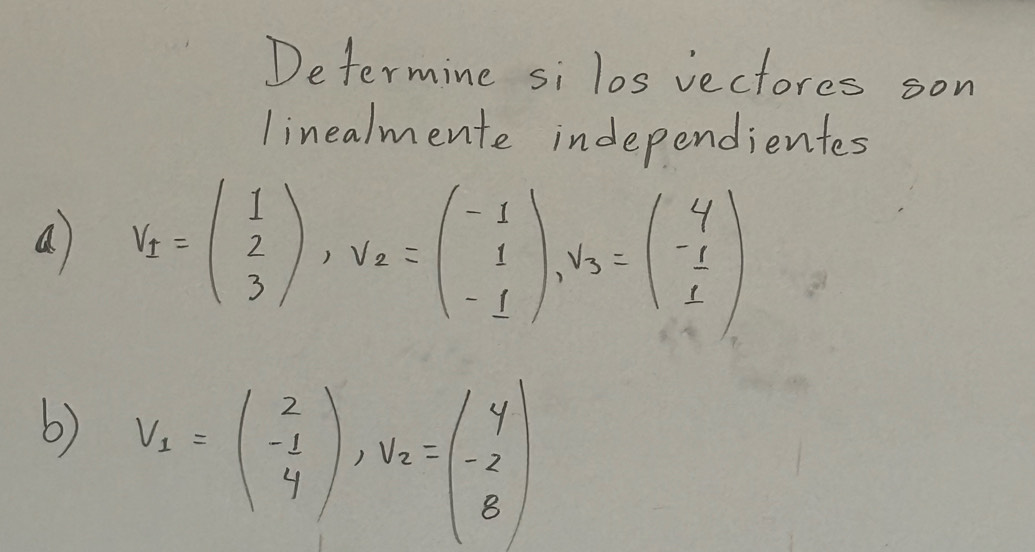 Determine si los vectores son
linealmente independientes
a) V1 = (1 2 3), V2 = (-1 1 -1), V3 = (4 -1 1)
b) V1 = (2 -1 4), V2 = (4 -2 8)